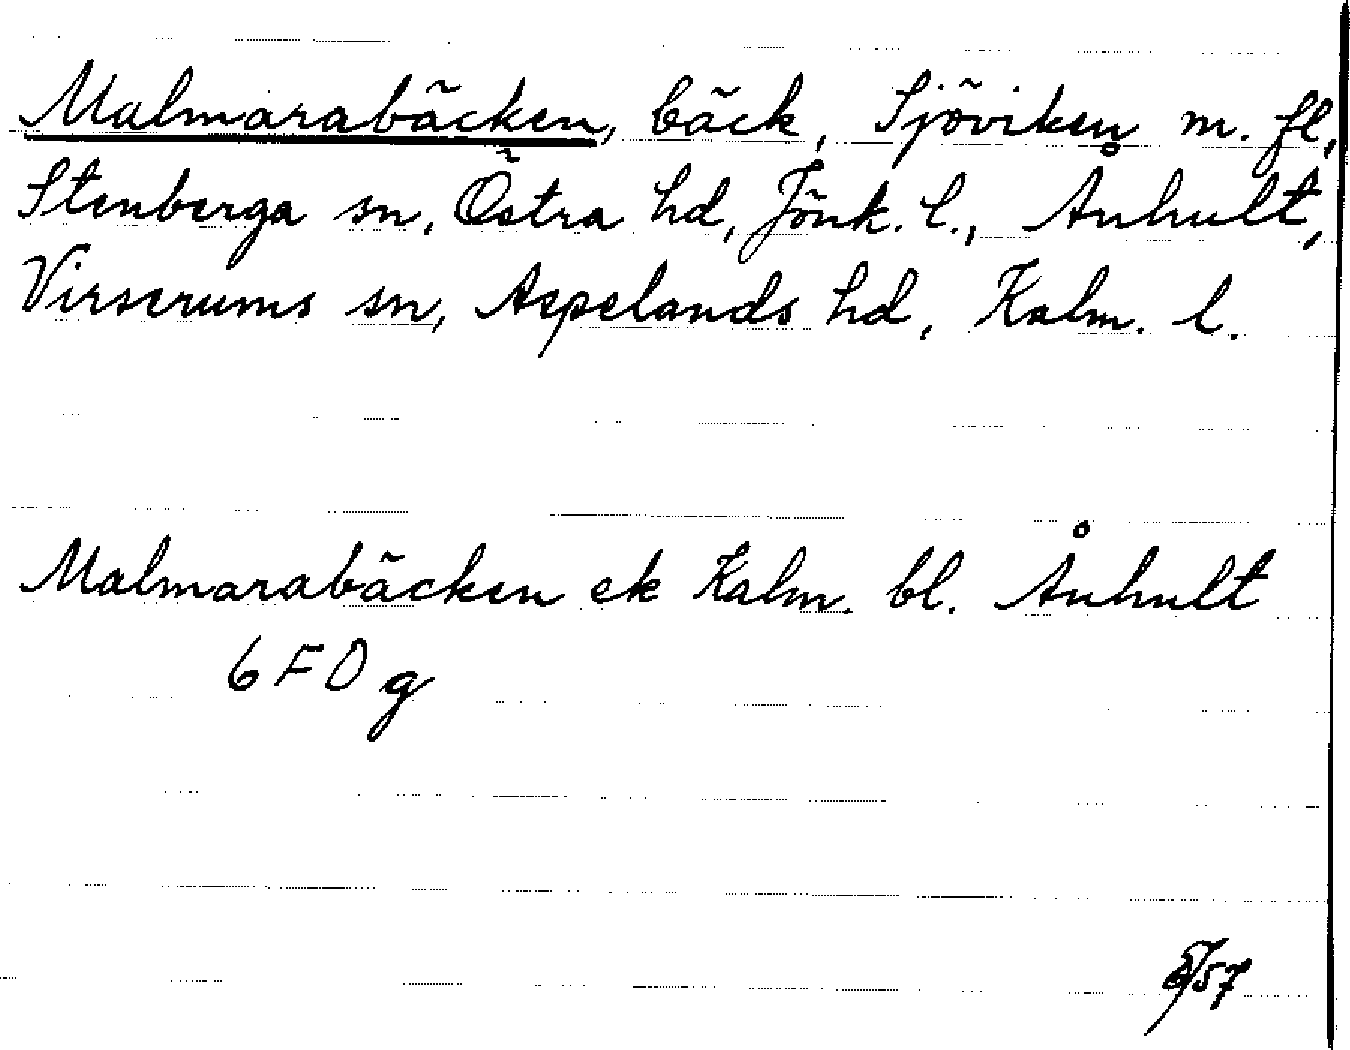 Malmarabäcken, bäck, Sjöviken m. fl,
Stenberga sn, Östra hd, Jönk. l., Ånhult,
Virserums sn, Aspelands hd, Kalm. l.
Malmarabäcken ek Kalm. bl. Ånhult
6 F 0 g